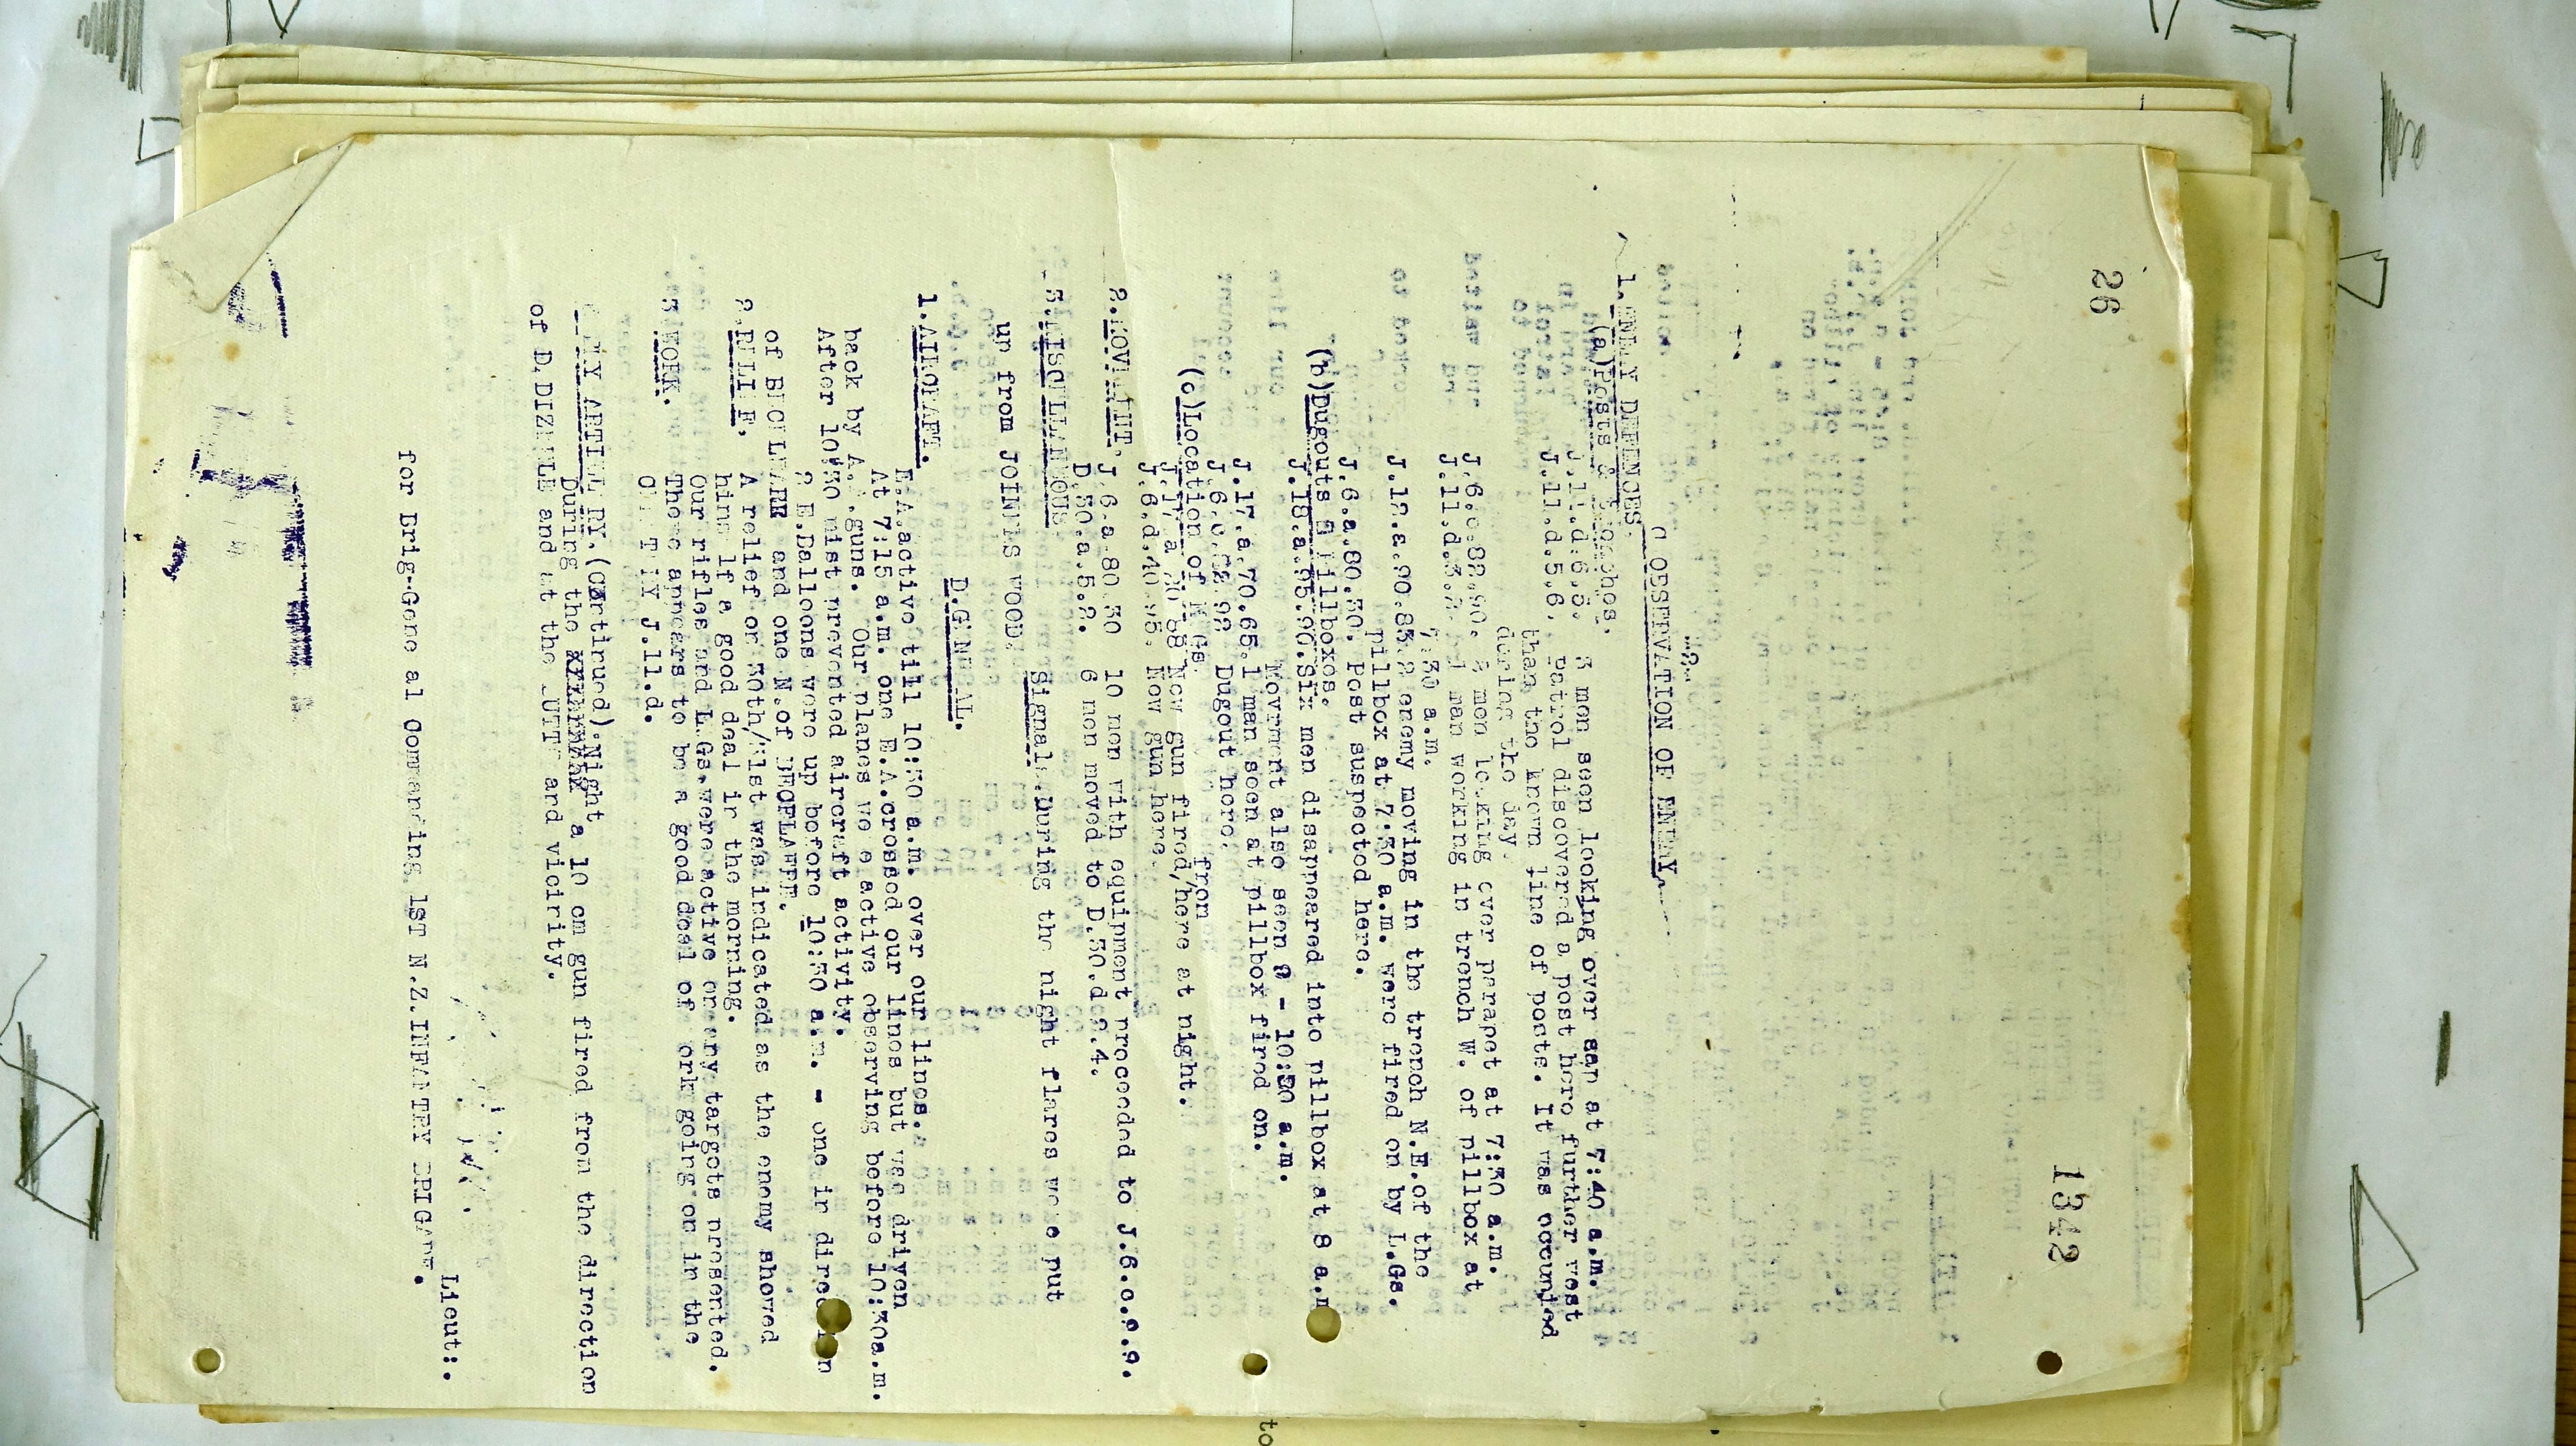 26
1342
..2..
C OBSERVATION OF ENEMY.
1. ENEMY DEFENCES.
(a)Posts & Trenches.
J.11.d.6.5. 3 men seen looking over sap at 7:40 a.m.
J.11.d.5.6. Patrol discovered a post here further west
than the known line of posts. It was occupied
during the day.
J.6.c.82.90. 2 men looking over parapet at 7:30 a.m.
J.11.d.3.2. 1 man working in trench W. of pillbox at
7.30 a.m.
J.12.a.90.85.2 enemy moving in the trench N.E.of the
pillbox at 7:30 a.m. were fired on by L.Gs.
J.6.a.80.30. Post suspected here.
(b)Dugouts & Pillboxes.
J.18.a.95.90.Six men disappeared into pillbox at 8 a.m
Movement also seen 9 - 10:30 a.m.
J.17.a.70.65.1 man seen at pillbox fired on.
J.6.c.92.92 Dugout here.
(c)Location of M.Gs.
from
J.17.a. Now gun fired/here at night.
J.6.d.40.95. Now gun here.
2.MOVEMENT. J.6.a.80.30 10 men with equipment proceeded to J.6.c.9.9.
D.30.a.5.2. 6 men moved to D.30.d.2.4.
3.MISCELLANEOUS. Signal. During the night flares were put
up from JOINERS WOOD.
D.GENERAL.
1.AIRCRAFT. E.A.active till 10:30 a.m. over our lines.
At 7:15 a.m. one E.A.crossed our lines but was driven
back by A.A.guns. Our planes were active observing before 10:30a.m.
After 10:30 mist prevented aircraft activity.
2 E.Balloons were up before 10:30 a.m. - one in direction
of BECELAERE and one N.of
2.RELIEF. A relief on 30th/31st was indicated as the enemy showed
himself a good deal in the morning.
Our rifles and L.Gs.were active on any targets presented.
3 WORK. There appears to be a good deal of work going on in the
J.11.d.
ENEMY ARTILLERY.(continued).Night
During the a 10 cm gun fired from the direction
of D,DIZEELE and at the BUTTE and vicinity.
Lieut:.
for Brig-General Commanding 1ST N.Z.INFANTRY BRIGADE.
to